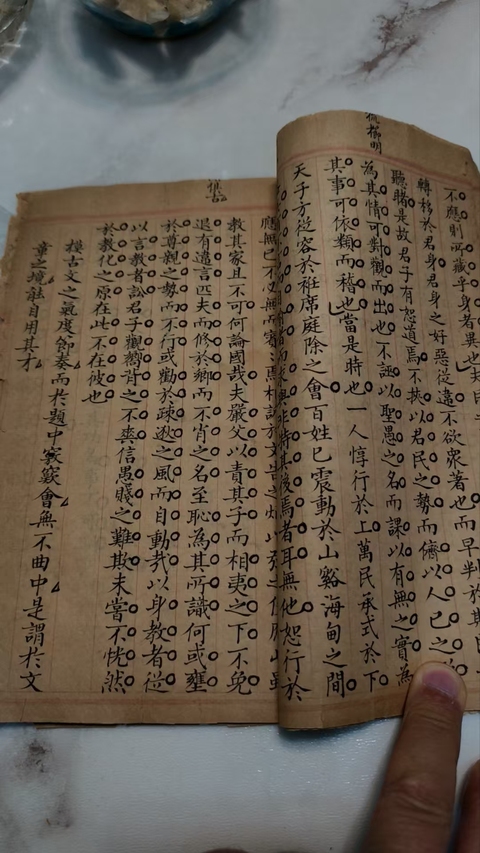 不應則所藏乎身者異也
轉移於君身君身之好惡從違不欲衆著也而早判於其
聽睹是故君子有恕道焉不挾以君民之勢而儕以人己之
為其情可對觀而出也不誣以聖愚之名而課以有無之實為
其事可依類而稽也當是時也一人惇行於上萬民承式於下
天子方從容於袵席庭除之會百姓已震動於山谿海甸之間
非特其後焉者耳無他恕行於
教其家且不可何論國哉夫嚴父以責其子而相夷之下不免
退有遺言匹夫而修於鄉而不肖之名至恥為其所識何或壅
於尊親之勢而不行或勸於疎逖之風而自動我以身教者從
以言教者訟君子觀嚮背之不爽信愚賤之難欺未嘗不恍然
於教化之原在此不在彼也
模古文之氣度節奏而於題中窾窾會無不曲中是謂於文
章之境能自用其才